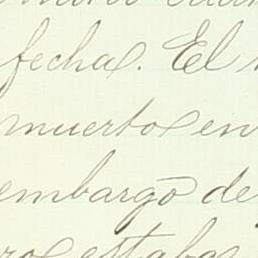 fecha. El
muertos en
embargo de
estaba